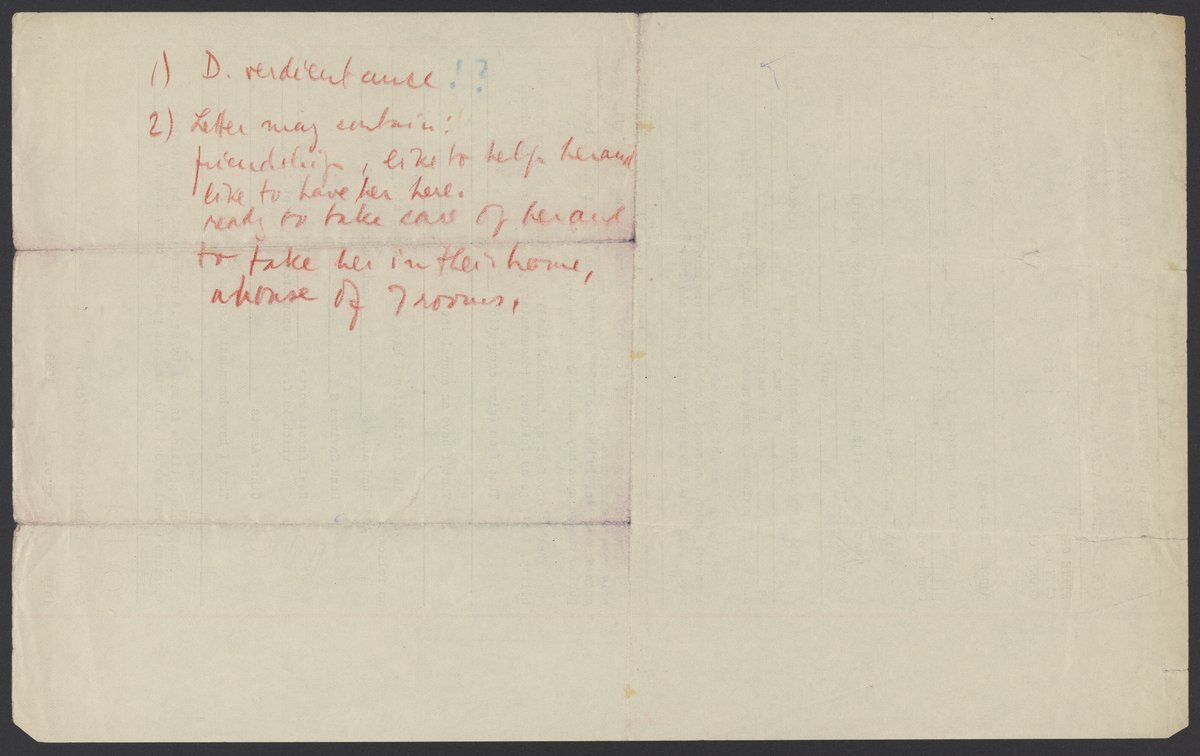 1) D. verdient auch !?
2) Letter may contain:
friendship, like to help her and
like to have her here.
ready to take care of her and
to take her in their home,
a house of 7 rooms.